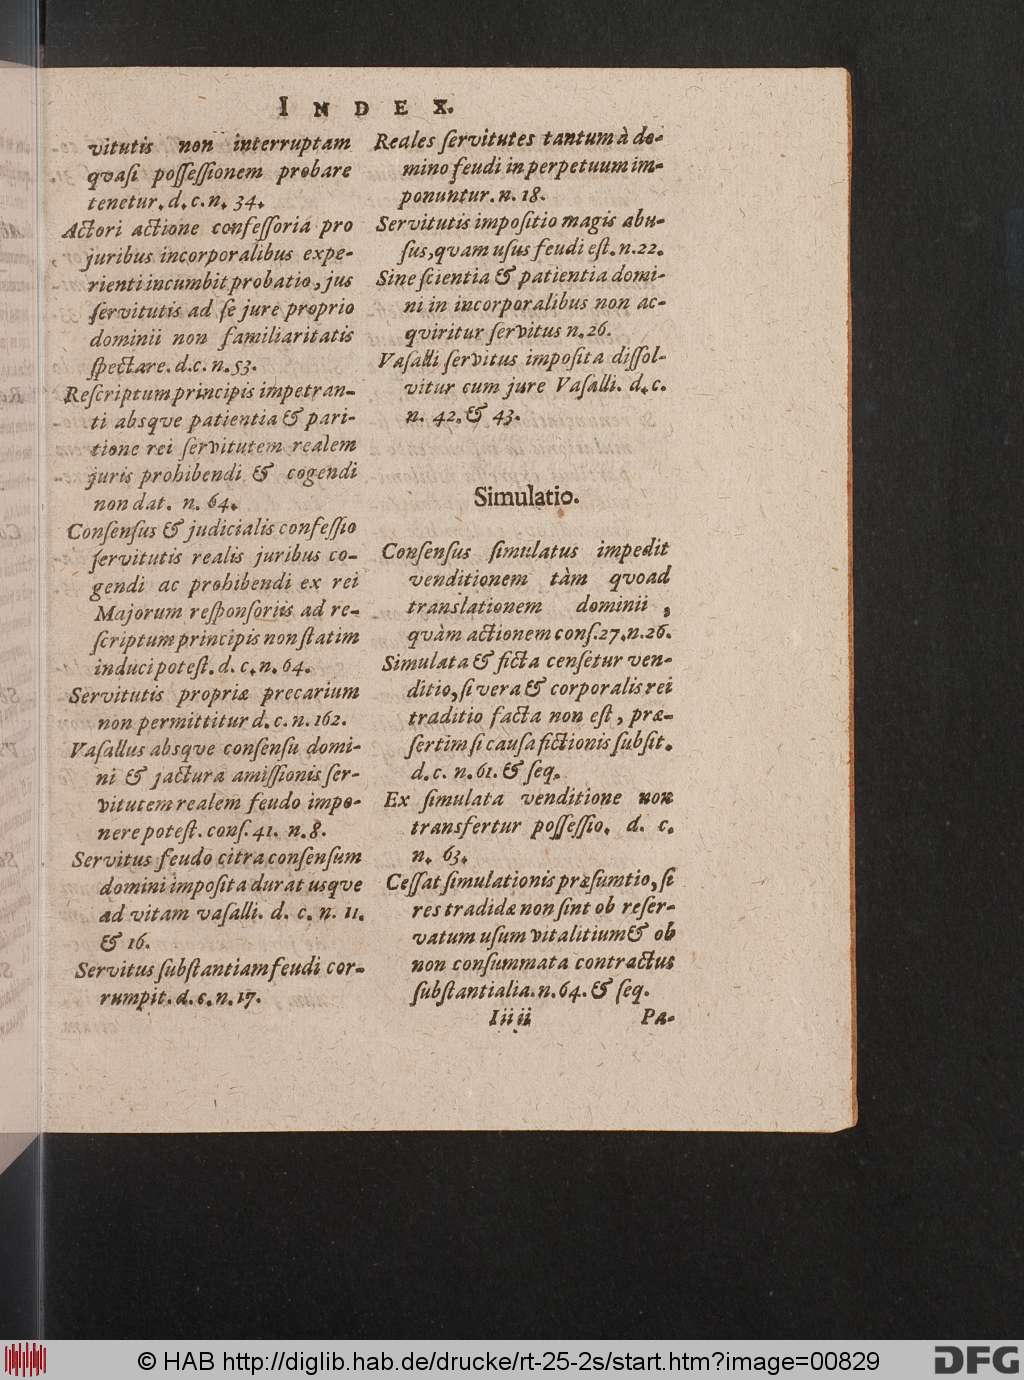 INDEX.
vitutis non interruptam
qvasi possessionem probare
tenetur. d. c. n. 34.
Actori actione confessoria pro
juribus incorporalibus expe-
rienti incumbit probatio, jus
servitutis ad se jure proprio
dominii non familiaritatis
spectare. d.c. n. 53.
Rescriptum principis impetran-
ti absqve patientia & pari-
tione rei servitutem realem
juris prohibendi & cogendi
non dat. n. 64.
Consensus & judicialis confessio
servitutis realis juribus co-
gendi ac prohibendi ex rei
Majorum responsoriis ad re-
scriptum principis non statim
induci potest. d. c. n. 64.
Servitutis propriæ precarium
non permittitur d. c. n. 162.
Vasallus absqve consensu domi-
ni & jactura amissionis ser-
vitutem realem feudo impo-
nere potest. cons. 41. n. 8.
Servitus feudo citra consensum
domini imposita durat usqve
ad vitam vasalli. d. c. n. 11.
& 16.
Servitus substantiam feudi cor-
rumpit. d. c. n. 17.
Reales servitutes tantum à do-
mino feudi in perpetuum im-
ponuntur. n. 18.
Servitutis impositio magis abu-
sus, qvam usus feudi est. n. 22.
Sine scientia & patientia domi-
ni in incorporalibus non ac-
qviritur servitus n. 26.
Vasalli servitus imposita dissol-
vitur cum jure Vasalli. d. c.
n. 42. & 43.
Simulatio.
Consensus simulatus impedit
venditionem tàm qvoad
translationem dominii,
qvàm actionem cons. 27. n. 26.
Simulata & ficta censetur ven-
ditio, si vera & corporalis rei
traditio facta non est, præ-
sertim si causa fictionis subsit.
d. c. n. 61. & seq.
Ex simulata venditione non
transfertur possessio. d. c.
n. 63.
Cessat simulationis præsumtio, si
res tradidæ non sint ob reser-
vatum usum vitalitium & ob
non consummata contractus
substantialia. n. 64. & seq.
Iiii ii
Pa-
© HAB http://diglib.hab.de/drucke/rt-25-2s/start.htm?image=00829
DFG